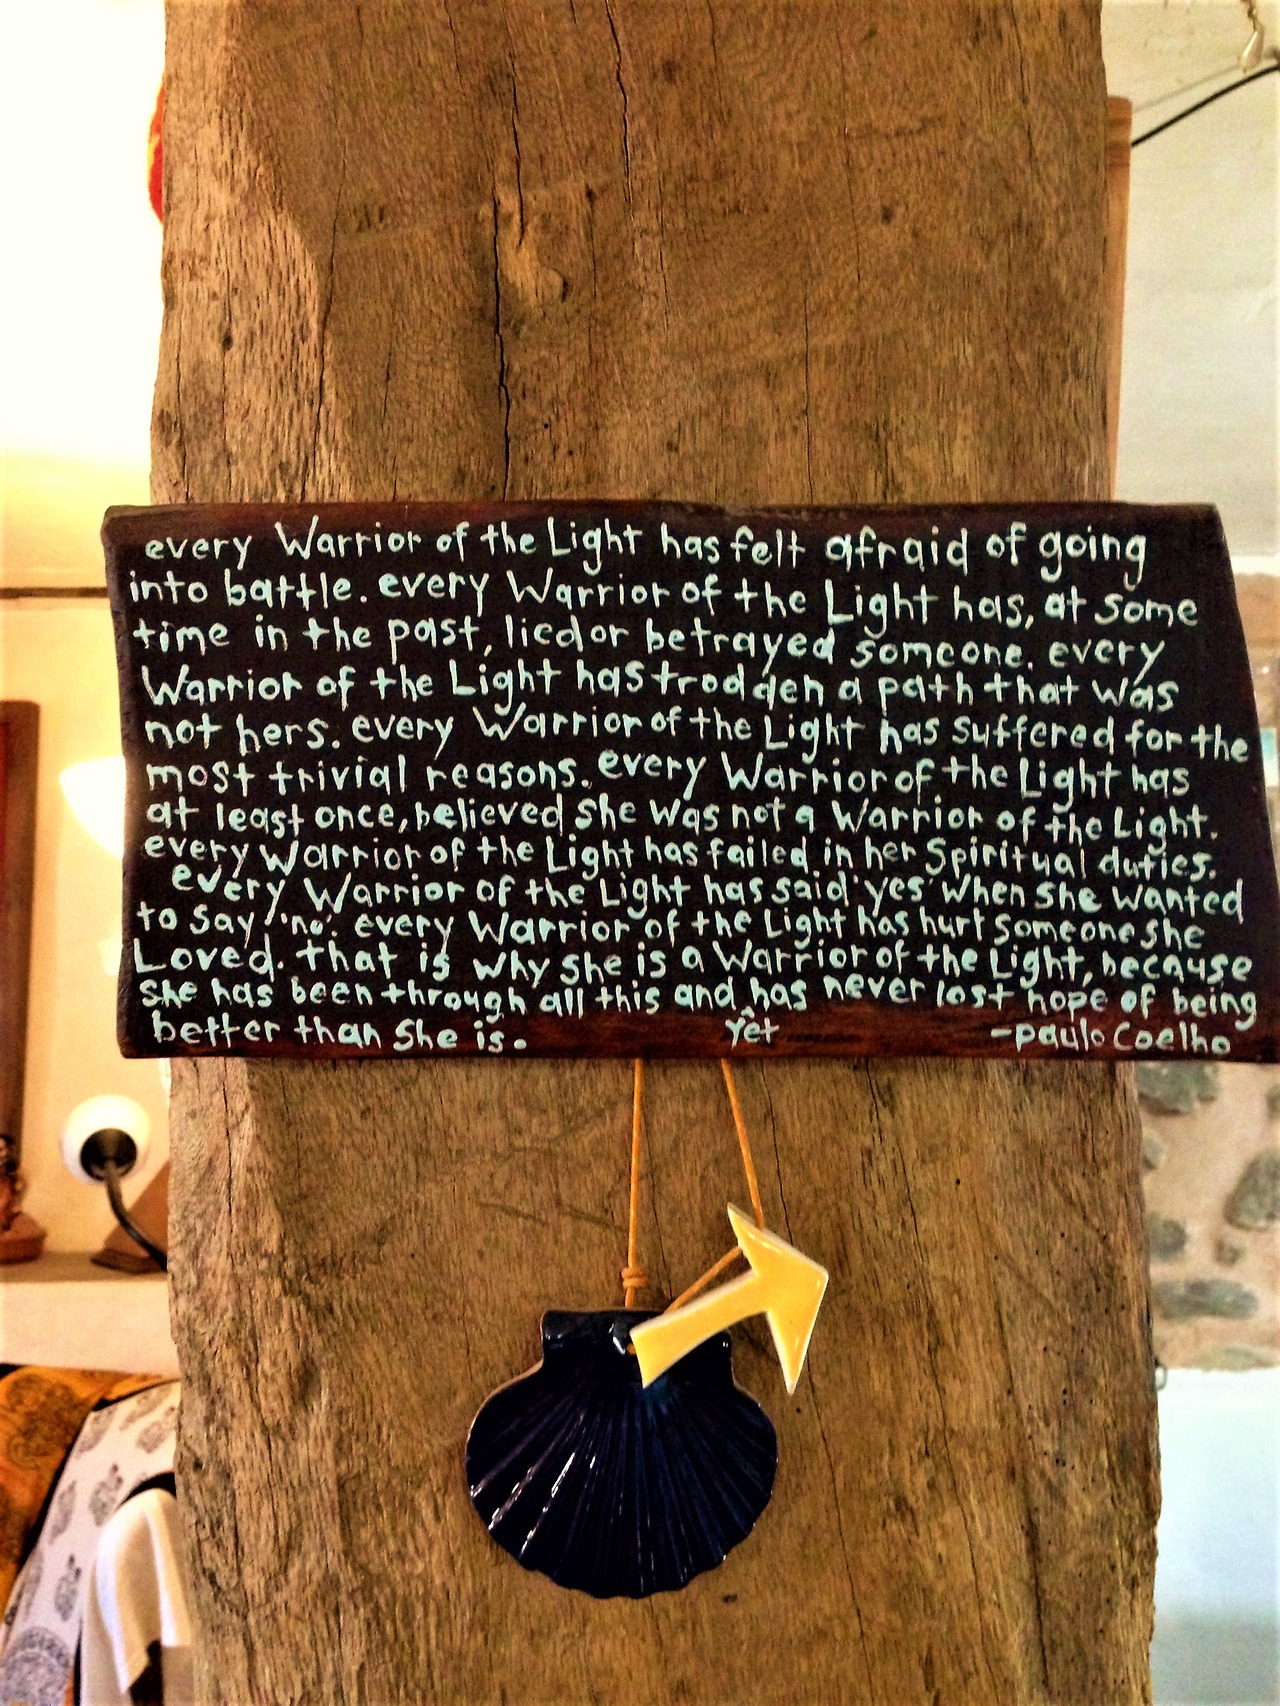 every Warrior of the Light has felt afraid of going
into battle. every Warrior of the Light has, at some
time in the past, lied or betrayed someone. every
Warrior of the Light has trodden a path that was
not hers. every Warrior of the Light has suffered for the
most trivial reasons. every Warrior of the Light has
at least once, believed she was not a Warrior of the Light.
every Warrior of the Light has failed in her Spiritual duties.
every Warrior of the Light has said 'yes' when she wanted
to say 'no'. every Warrior of the Light has hurt someone she
Loved. that is why she is a Warrior of the Light, because
she has been through all this and has never lost hope of being
better than she is. ^yet -paulo Coelho